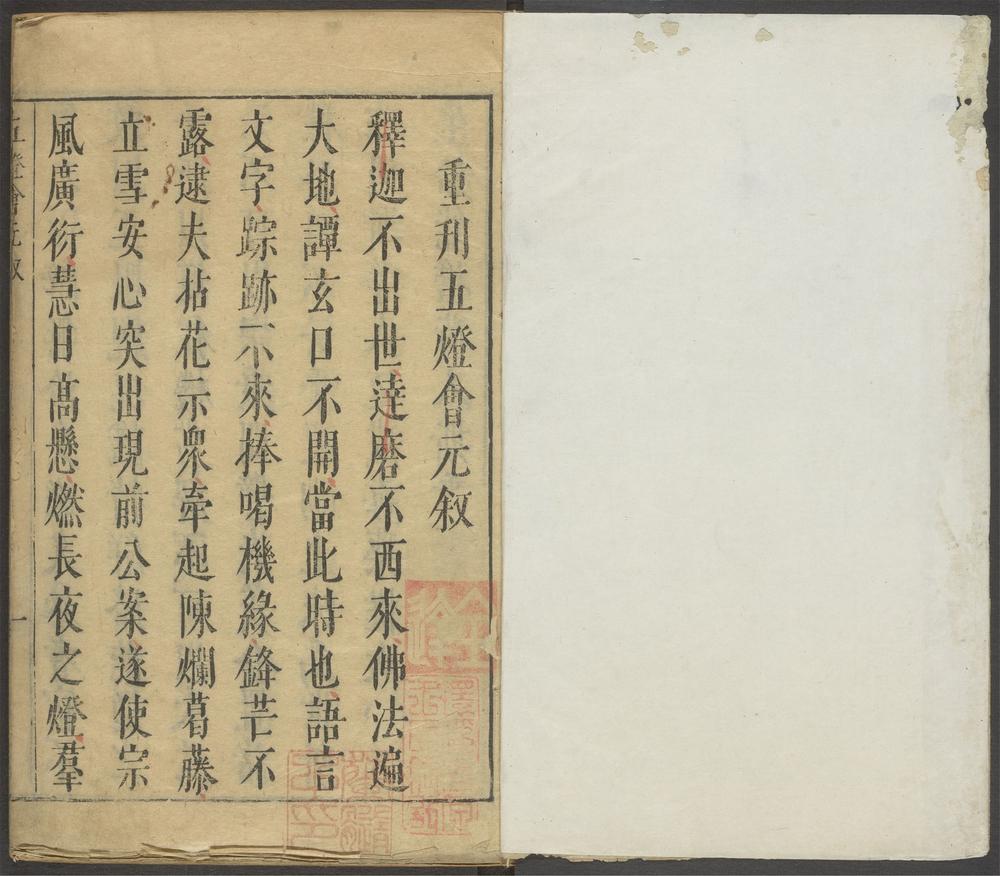 重刊五燈會元叙
釋迦不出世達磨不西來佛法遍
大地譚玄口不開當此時也語言
文字踪跡不來棒喝機緣鋒芒不
露逮夫拈花示眾牽起陳爛葛藤
立雪安心突出現前公案遂使宗
風廣衍慧日高懸燃長夜之燈羣
五燈會元叙
一